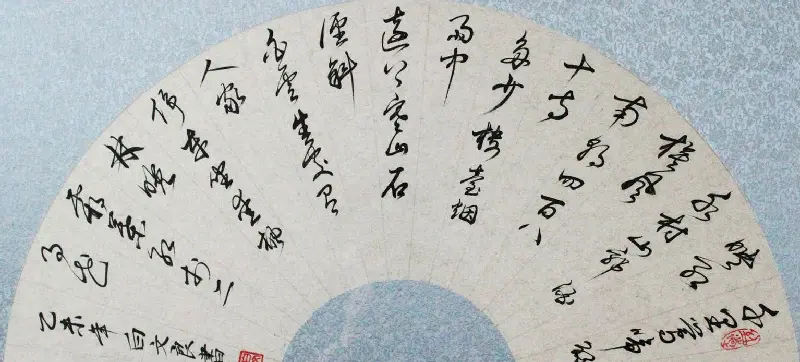 千里鶯啼
映红
水村山郭酒
旗风
南朝四百八
十寺
多少楼臺烟
雨中
远上寒山石
径斜
白云生处有
人家
停车坐爱枫
林晚
霜叶红于二
月花
乙未年白文良書